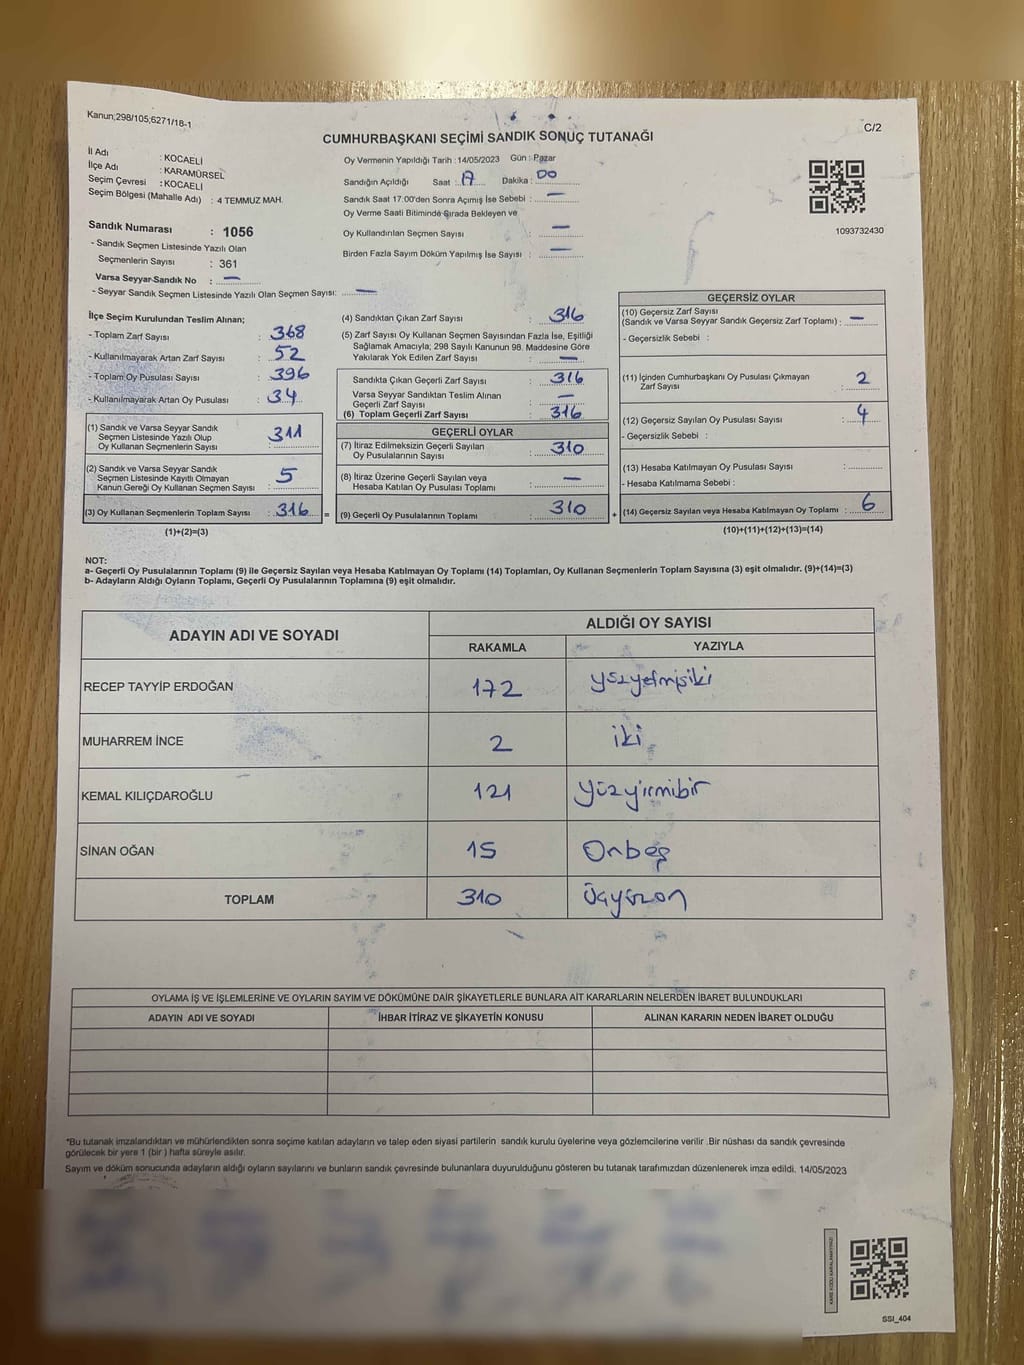 Kanun;298/105;6271/18-1
C/2
CUMHURBAŞKANI SEÇİMİ SANDIK SONUÇ TUTANAĞI
İl Adı : KOCAELİ
İlçe Adı : KARAMÜRSEL
Seçim Çevresi : KOCAELİ
Seçim Bölgesi (Mahalle Adı) : 4 TEMMUZ MAH.
Oy Vermenin Yapıldığı Tarih :14/05/2023 Gün : Pazar
Sandığın Açıldığı Saat : 17 Dakika : 00
Sandık Saat 17:00'den Sonra Açımış İse Sebebi : —
Oy Verme Saati Bitiminde Sırada Bekleyen ve
Oy Kullandırılan Seçmen Sayısı : —
Birden Fazla Sayım Döküm Yapılmış İse Sayısı : —
1093732430
Sandık Numarası : 1056
- Sandık Seçmen Listesinde Yazılı Olan
Seçmenlerin Sayısı : 361
Varsa Seyyar Sandık No : —
- Seyyar Sandık Seçmen Listesinde Yazılı Olan Seçmen Sayısı: —
İlçe Seçim Kurulundan Teslim Alınan;
- Toplam Zarf Sayısı : 368
- Kullanılmayarak Artan Zarf Sayısı : 52
- Toplam Oy Pusulası Sayısı : 396
- Kullanılmayarak Artan Oy Pusulası : 34
(1) Sandık ve Varsa Seyyar Sandık
Seçmen Listesinde Yazılı Olup
Oy Kullanan Seçmenlerin Sayısı : 311
(2) Sandık ve Varsa Seyyar Sandık
Seçmen Listesinde Kayıtlı Olmayan
Kanun Gereği Oy Kullanan Seçmen Sayısı : 5
(3) Oy Kullanan Seçmenlerin Toplam Sayısı : 316
(1)+(2)=(3)
(4) Sandıktan Çıkan Zarf Sayısı : 316
(5) Zarf Sayısı Oy Kullanan Seçmen Sayısından Fazla İse, Eşitliği
Sağlamak Amacıyla; 298 Sayılı Kanunun 98. Maddesine Göre
Yakılarak Yok Edilen Zarf Sayısı : —
Sandıkta Çıkan Geçerli Zarf Sayısı : 316
Varsa Seyyar Sandıktan Teslim Alınan
Geçerli Zarf Sayısı : —
(6) Toplam Geçerli Zarf Sayısı : 316
GEÇERLİ OYLAR
(7) İtiraz Edilmeksizin Geçerli Sayılan
Oy Pusulalarının Sayısı : 310
(8) İtiraz Üzerine Geçerli Sayılan veya
Hesaba Katılan Oy Pusulası Toplamı : —
= (9) Geçerli Oy Pusulalarının Toplamı : 310 +
GEÇERSİZ OYLAR
(10) Geçersiz Zarf Sayısı
(Sandık ve Varsa Seyyar Sandık Geçersiz Zarf Toplamı) : —
- Geçersizlik Sebebi :
(11) İçinden Cumhurbaşkanı Oy Pusulası Çıkmayan
Zarf Sayısı : 2
(12) Geçersiz Sayılan Oy Pusulası Sayısı : 4
- Geçersizlik Sebebi :
(13) Hesaba Katılmayan Oy Pusulası Sayısı :
- Hesaba Katılmama Sebebi :
(14) Geçersiz Sayılan veya Hesaba Katılmayan Oy Toplamı : 6
(10)+(11)+(12)+(13)=(14)
NOT:
a- Geçerli Oy Pusulalarının Toplamı (9) ile Geçersiz Sayılan veya Hesaba Katılmayan Oy Toplamı (14) Toplamları, Oy Kullanan Seçmenlerin Toplam Sayısına (3) eşit olmalıdır. (9)+(14)=(3)
b- Adayların Aldığı Oyların Toplamı, Geçerli Oy Pusulalarının Toplamına (9) eşit olmalıdır.
ADAYIN ADI VE SOYADI ALDIĞI OY SAYISI
RAKAMLA YAZIYLA
RECEP TAYYİP ERDOĞAN 172 yüzyetmişiki
MUHARREM İNCE 2 iki
KEMAL KILIÇDAROĞLU 121 yüzyirmibir
SİNAN OĞAN 15 Onbeş
TOPLAM 310 üçyüzon
OYLAMA İŞ VE İŞLEMLERİNE VE OYLARIN SAYIM VE DÖKÜMÜNE DAİR ŞİKAYETLERLE BUNLARA AİT KARARLARIN NELERDEN İBARET BULUNDUKLARI
ADAYIN ADI VE SOYADI İHBAR İTİRAZ VE ŞİKAYETİN KONUSU ALINAN KARARIN NEDEN İBARET OLDUĞU
*Bu tutanak imzalandıktan ve mühürlendikten sonra seçime katılan adayların ve talep eden siyasi partilerin sandık kurulu üyelerine veya gözlemcilerine verilir .Bir nüshası da sandık çevresinde
görülecek bir yere 1 (bir ) hafta süreyle asılır.
Sayım ve döküm sonucunda adayların aldığı oyların sayılarını ve bunların sandık çevresinde bulunanlara duyurulduğunu gösteren bu tutanak tarafımızdan düzenlenerek imza edildi. 14/05/2023
KARE KODU KARALAMAYINIZ!
SSI_404